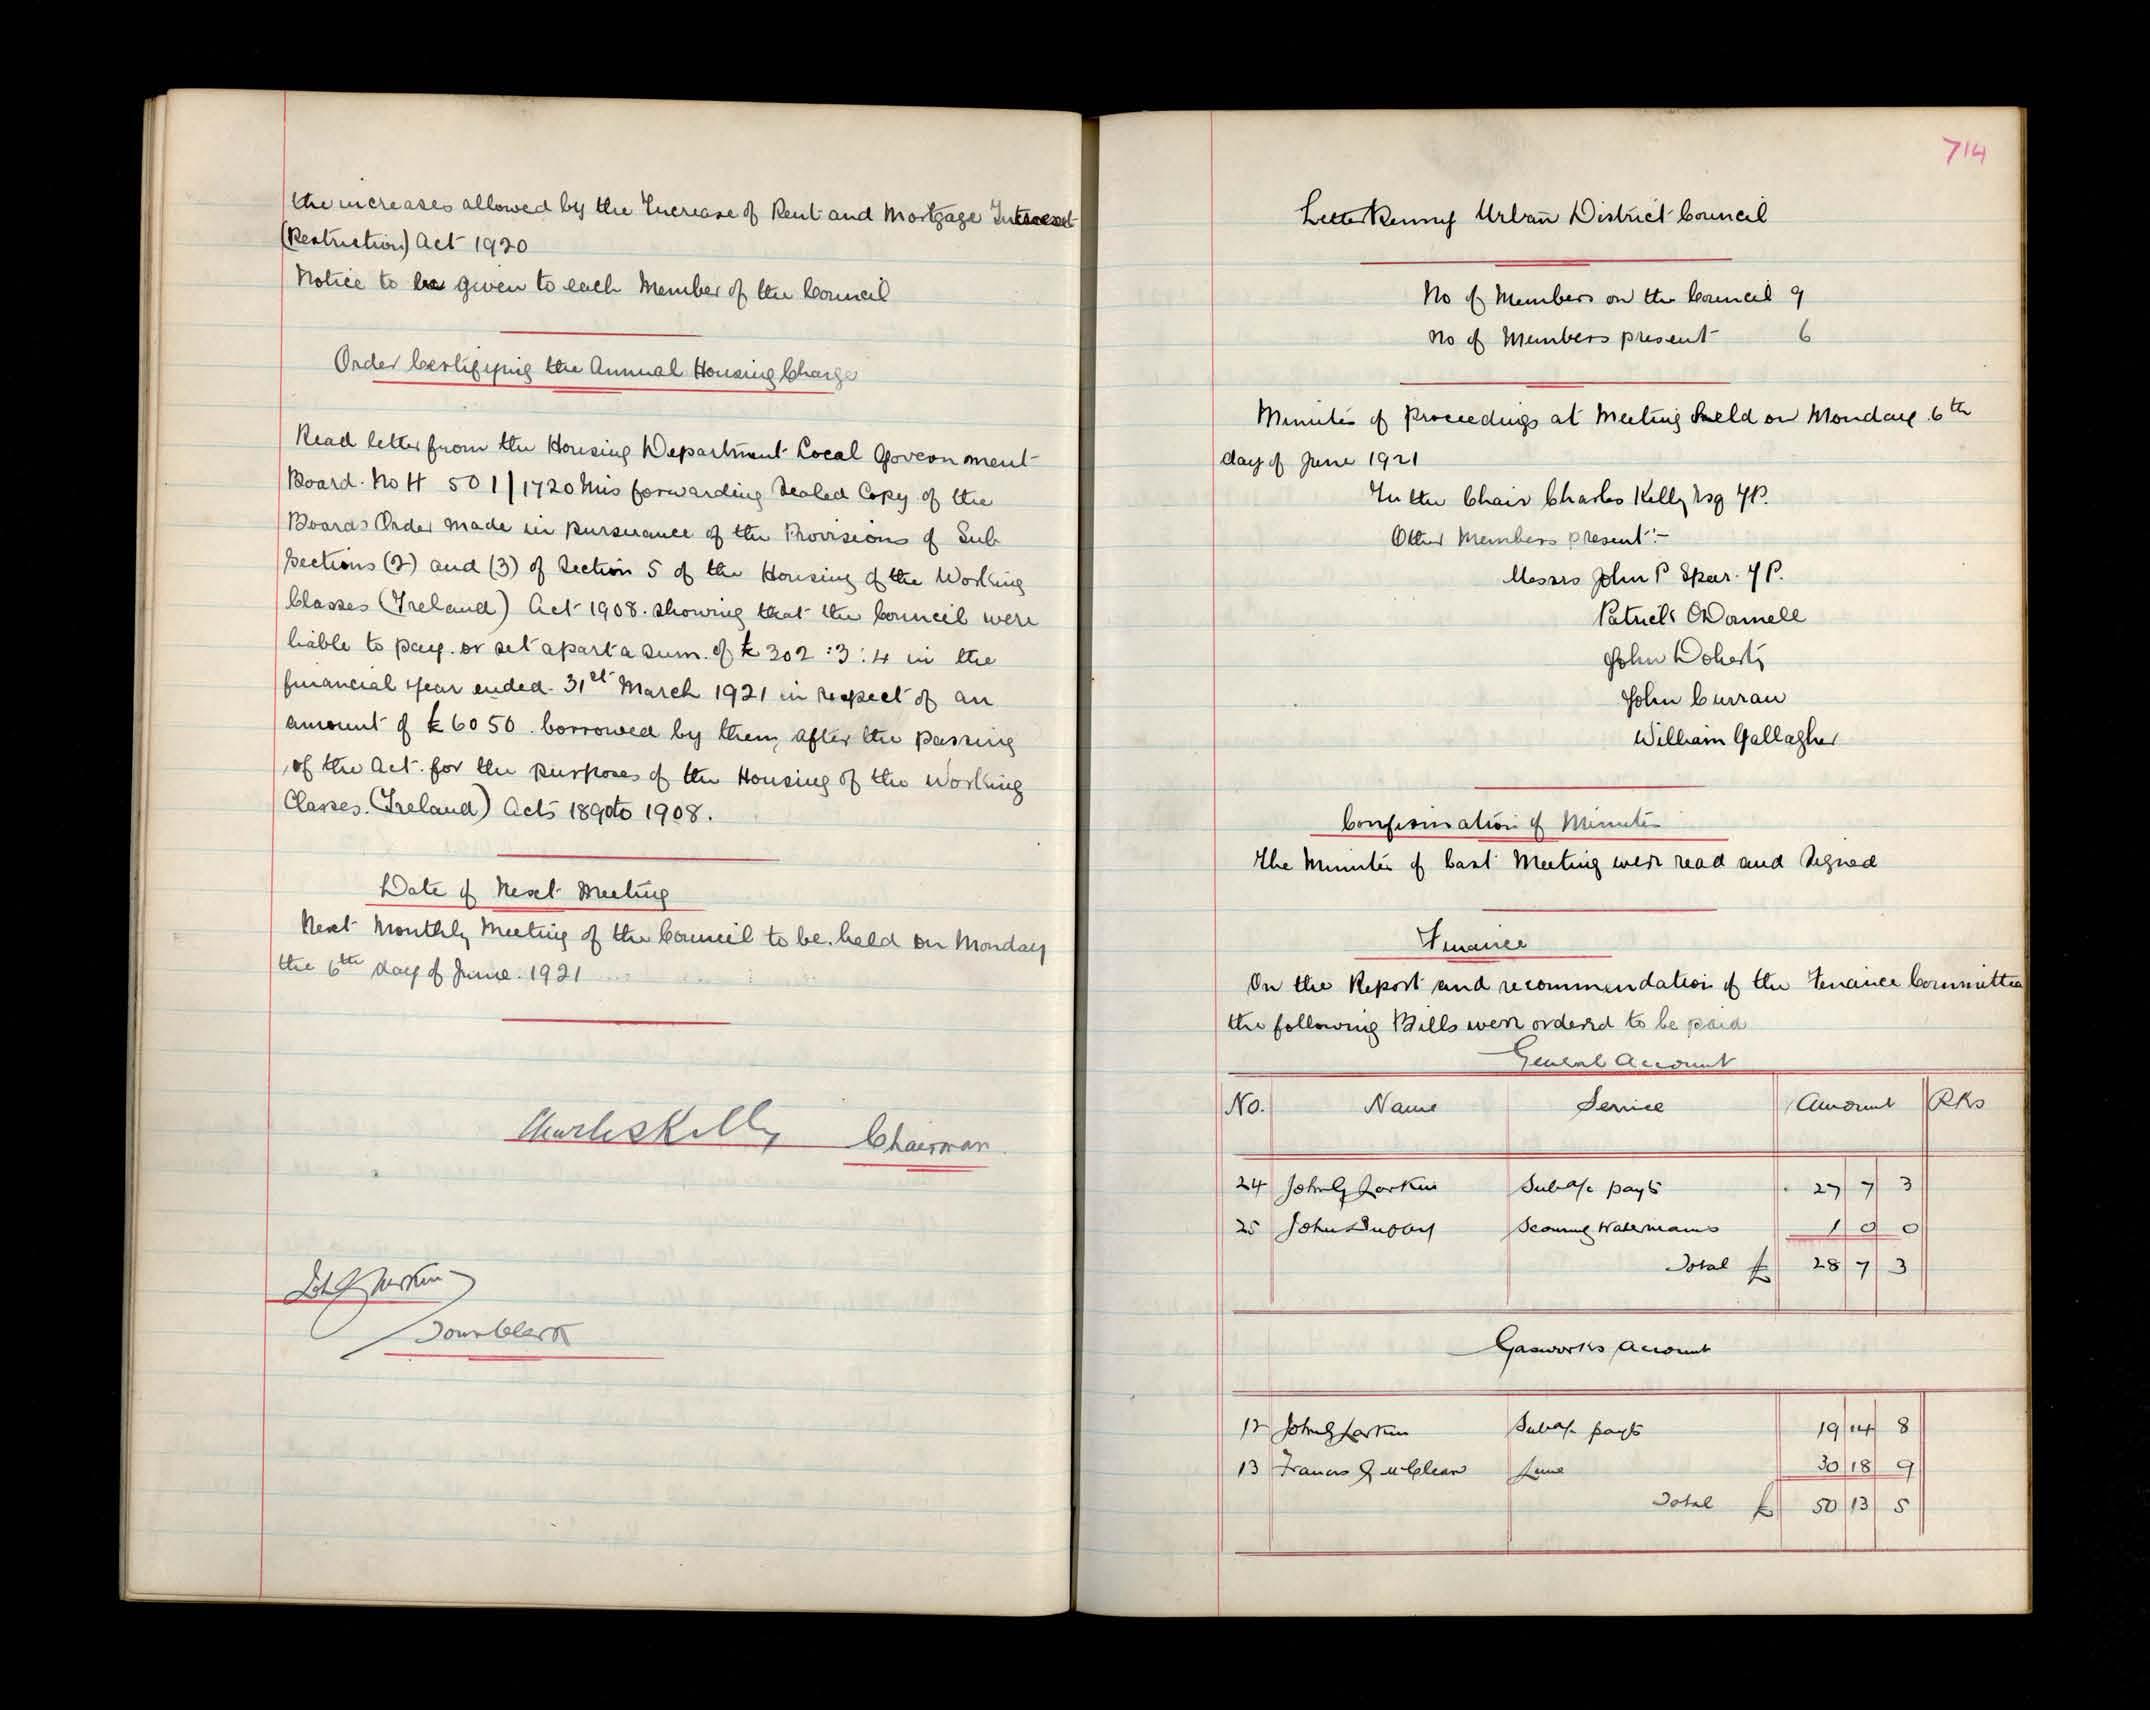 the increases allowed by the Increase of Rent and Mortgage Interest
(Restriction) Act 1920
Notice to be given to each Member of the Council
Order Certifying the Annual Housing Charge
Read letter from the Housing Department Local Government
Board. No H 501/1720 Mis forwarding Sealed Copy of the
Boards Order made in pursuance of the Provisions of Sub
Sections (2) and (3) of Section 5 of the Housing of the Working
Classes (Ireland) Act 1908. showing that the Council were
liable to pay. or set apart a sum. of £302:3:4 in the
financial year ended 31st March 1921 in respect of an
amount of £6050. borrowed by them, after the passing
of the Act. for the purposes of the Housing of the Working
Classes. (Ireland) Acts 1890 to 1908.
Date of Next Meeting
Next Monthly Meeting of the Council to be held on Monday
the 6th day of June. 1921
Charles Kelly Chairman
Town Clerk
714
Letterkenny Urban District Council
No of Members on the Council 9
No of Members present 6
Minutes of Proceedings at Meeting held on Monday 6th
day of June 1921
In the Chair Charles Kelly Esq JP.
Other Members present:-
Messrs John P Spear. JP.
Patrick ODonnell
John Doherty
John Curran
William Gallagher
Confirmation of Minutes
The Minutes of last Meeting were read and Signed
Finance
On the Report and recommendation of the Finance Committee
the following Bills were ordered to be paid
General Account
No. Name Service Amount Rks
24 John G Larkin Suba/c payts 27 7 3
25 John Scouring Watermains 1 0 0
Total £ 28 7 3
Gasworks Account
12 John G Larkin Suba/c payts 19 14 8
13 Francis J McClean Lime 30 18 9
Total £ 50 13 5